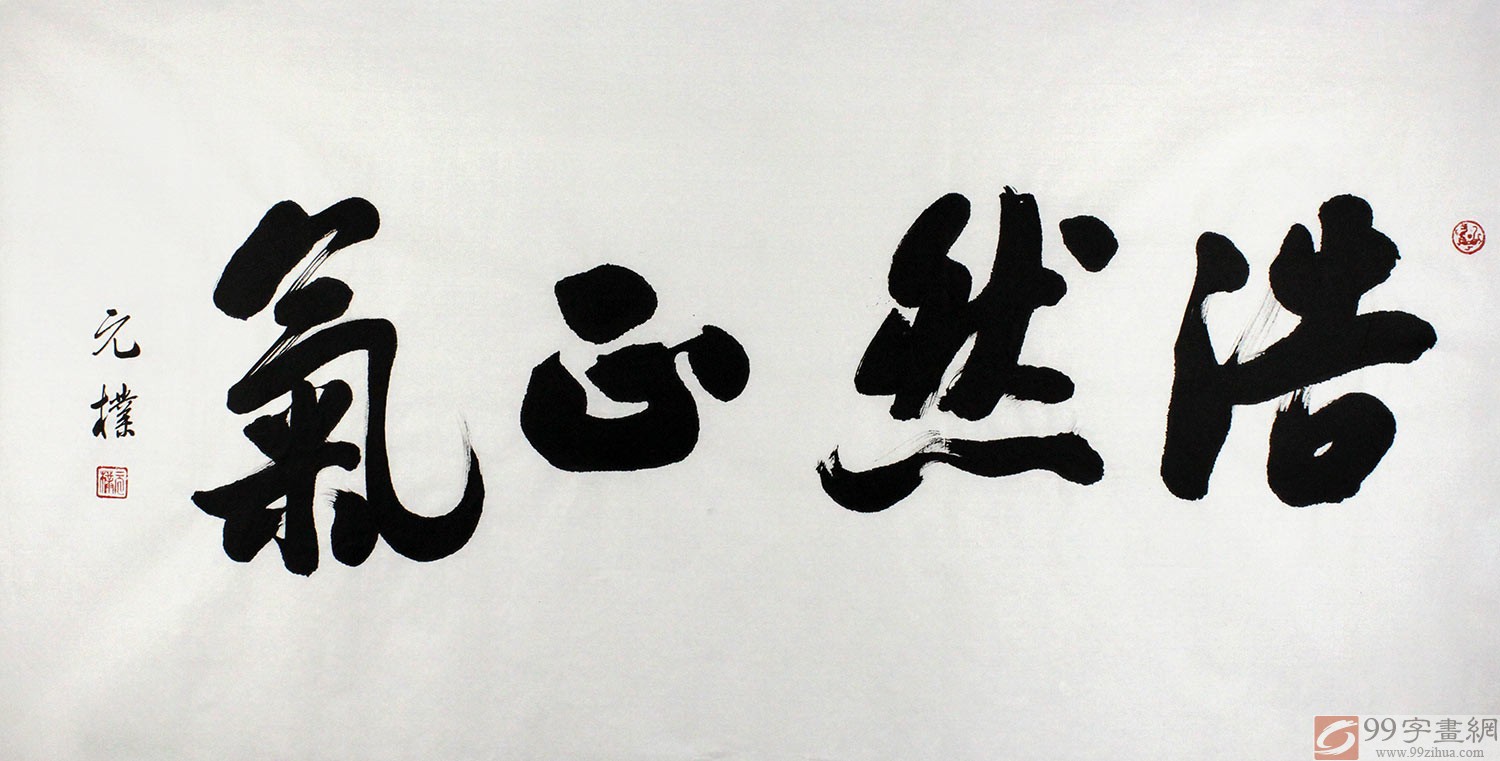 浩然正氣
元樸
元樸
99字畫網
www.99zihua.com